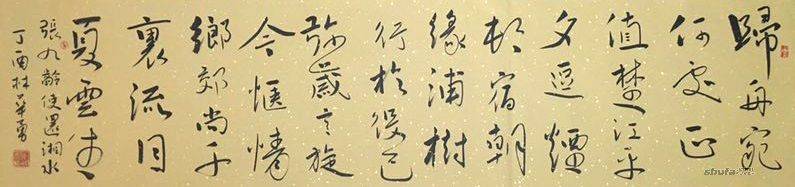 歸舟宛
何處正
值楚江平
夕逗煙
村宿朝
緣浦樹
行於役已
弥歲言旋
今愜情
鄉郊尚千
裏流目
夏雲生
張九齡使還湘水
丁酉林華勇